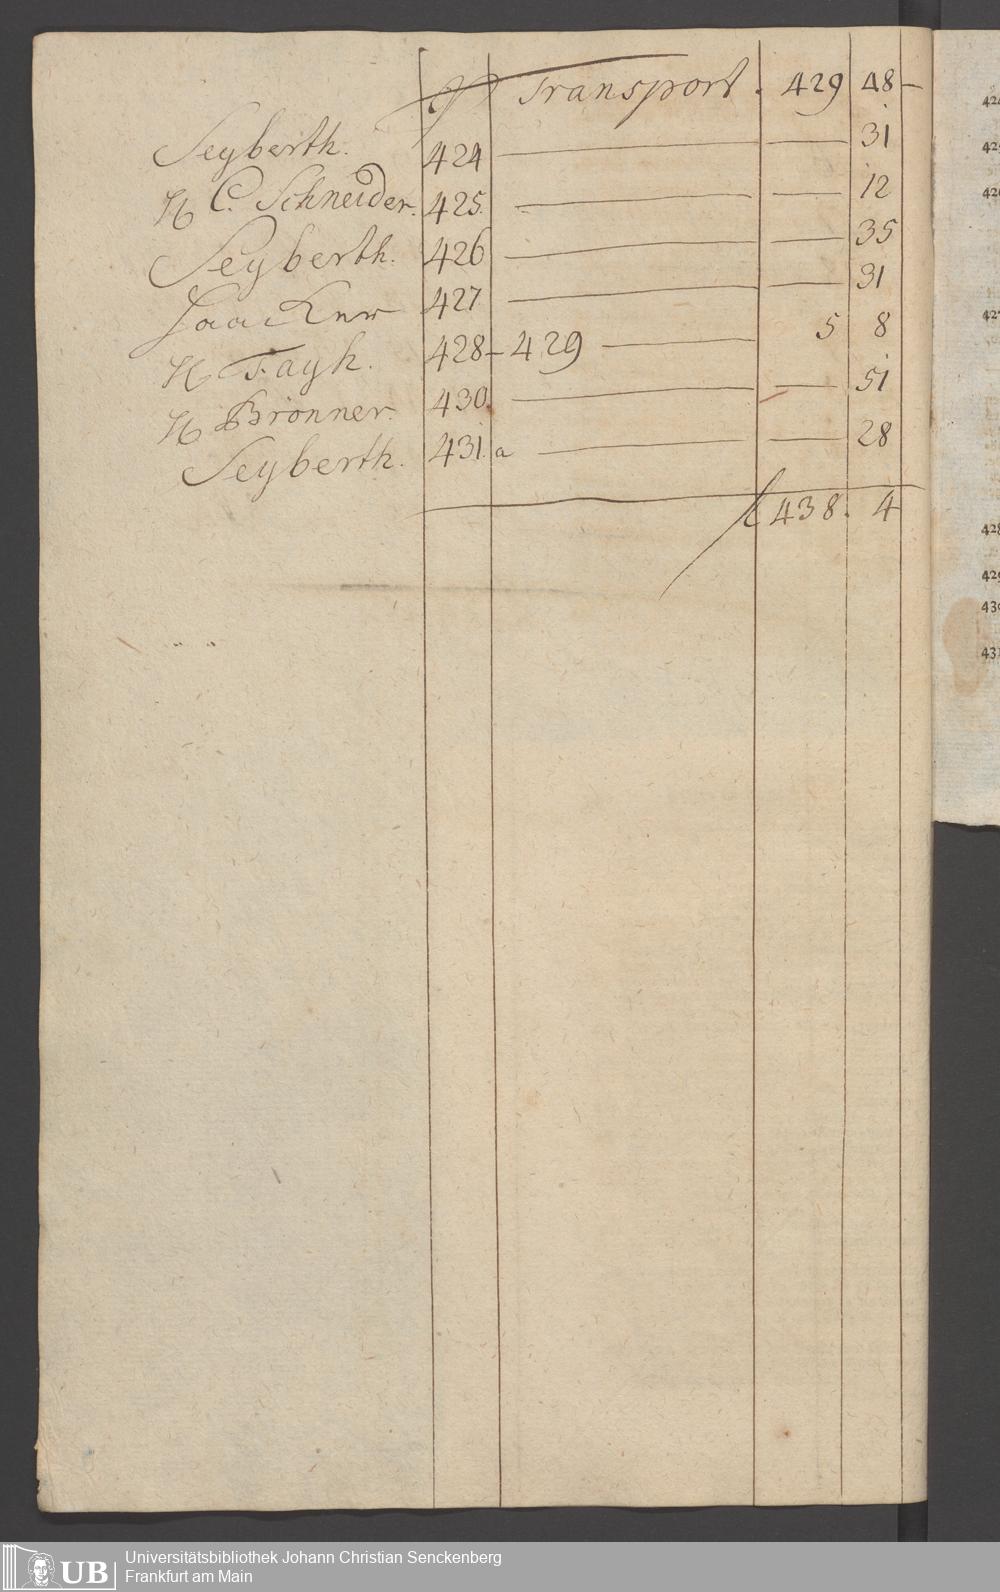 Transport. 429 48 –
Seyberth. 424 — — 31
H C. Schneider. 425. — — 12
Seyberth. 426 — — 35
427 — — 31
H Fayh. 428 – 429 — 5 8
H Brönner. 430. — — 51
Seyberth. 431. a — — 28
438. 4
428
429
431
Universitätsbibliothek Johann Christian Senckenberg
Frankfurt am Main
UB